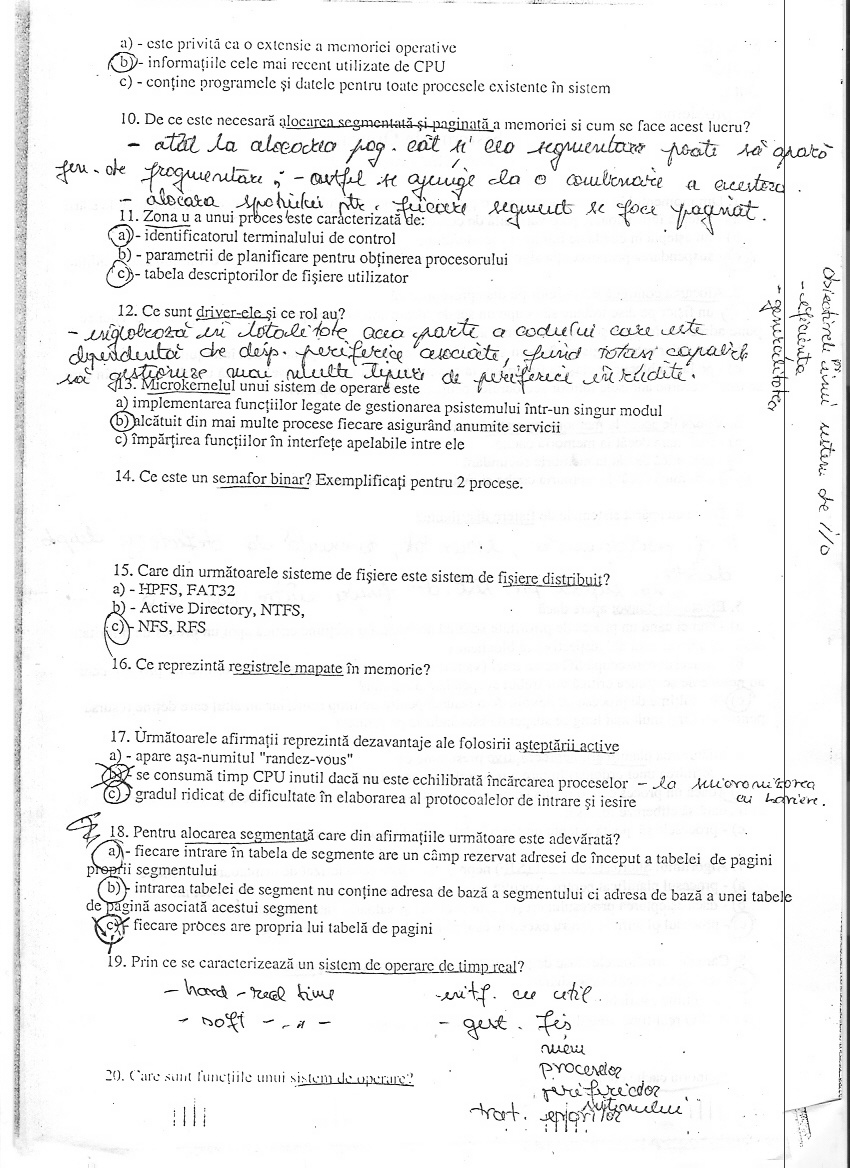 a) - este privită ca o extensie a memoriei operative
b) - informaţiile cele mai recent utilizate de CPU
c) - conţine programele şi datele pentru toate procesele existente în sistem
10. De ce este necesară alocarea segmentată şi paginată a memoriei si cum se face acest lucru?
- atât la alocarea pag. cât şi cea segmentare poate să apară
fen. de fragmentare; - astfel se ajunge la o combinare a acestora.
- alocarea spaţiului ptr. fiecare segment se face paginat.
11. Zona u a unui proces este caracterizată de:
a) - identificatorul terminalului de control
b) - parametrii de planificare pentru obţinerea procesorului
c) - tabela descriptorilor de fişiere utilizator
12. Ce sunt driver-ele şi ce rol au?
- înglobează în totalitate acea parte a codului care este
dependentă de disp. periferice asociate, fiind totuşi capabile
să gestioneze mai multe tipuri de periferice înrudite.
13. Microkernelul unui sistem de operare este
a) implementarea funcţiilor legate de gestionarea psistemului într-un singur modul
b) alcătuit din mai multe procese fiecare asigurând anumite servicii
c) împărţirea funcţiilor în interfeţe apelabile intre ele
14. Ce este un semafor binar? Exemplificaţi pentru 2 procese.
15. Care din următoarele sisteme de fişiere este sistem de fişiere distribuit?
a) - HPFS, FAT32
b) - Active Directory, NTFS,
c) - NFS, RFS
16. Ce reprezintă registrele mapate în memorie?
17. Următoarele afirmaţii reprezintă dezavantaje ale folosirii aşteptării active
a) - apare aşa-numitul "randez-vous"
b) - se consumă timp CPU inutil dacă nu este echilibrată încărcarea proceselor - la sincronizarea
c) - gradul ridicat de dificultate în elaborarea al protocoalelor de intrare şi iesire cu bariere.
18. Pentru alocarea segmentată care din afirmaţiile următoare este adevărată?
a) - fiecare intrare în tabela de segmente are un câmp rezervat adresei de început a tabelei de pagini
proprii segmentului
b) - intrarea tabelei de segment nu conţine adresa de bază a segmentului ci adresa de bază a unei tabele
de pagină asociată acestui segment
c) - fiecare proces are propria lui tabelă de pagini
19. Prin ce se caracterizează un sistem de operare de timp real?
- hard - real time
- soft - „ -
- intf. cu util.
- gest. fiş
mem
proceselor
perifericelor
sistemului
trat. erorilor
20. Care sunt funcţiile unui sistem de operare?
Obiectivele unui sistem de i/o
- eficienţa
- generalitatea